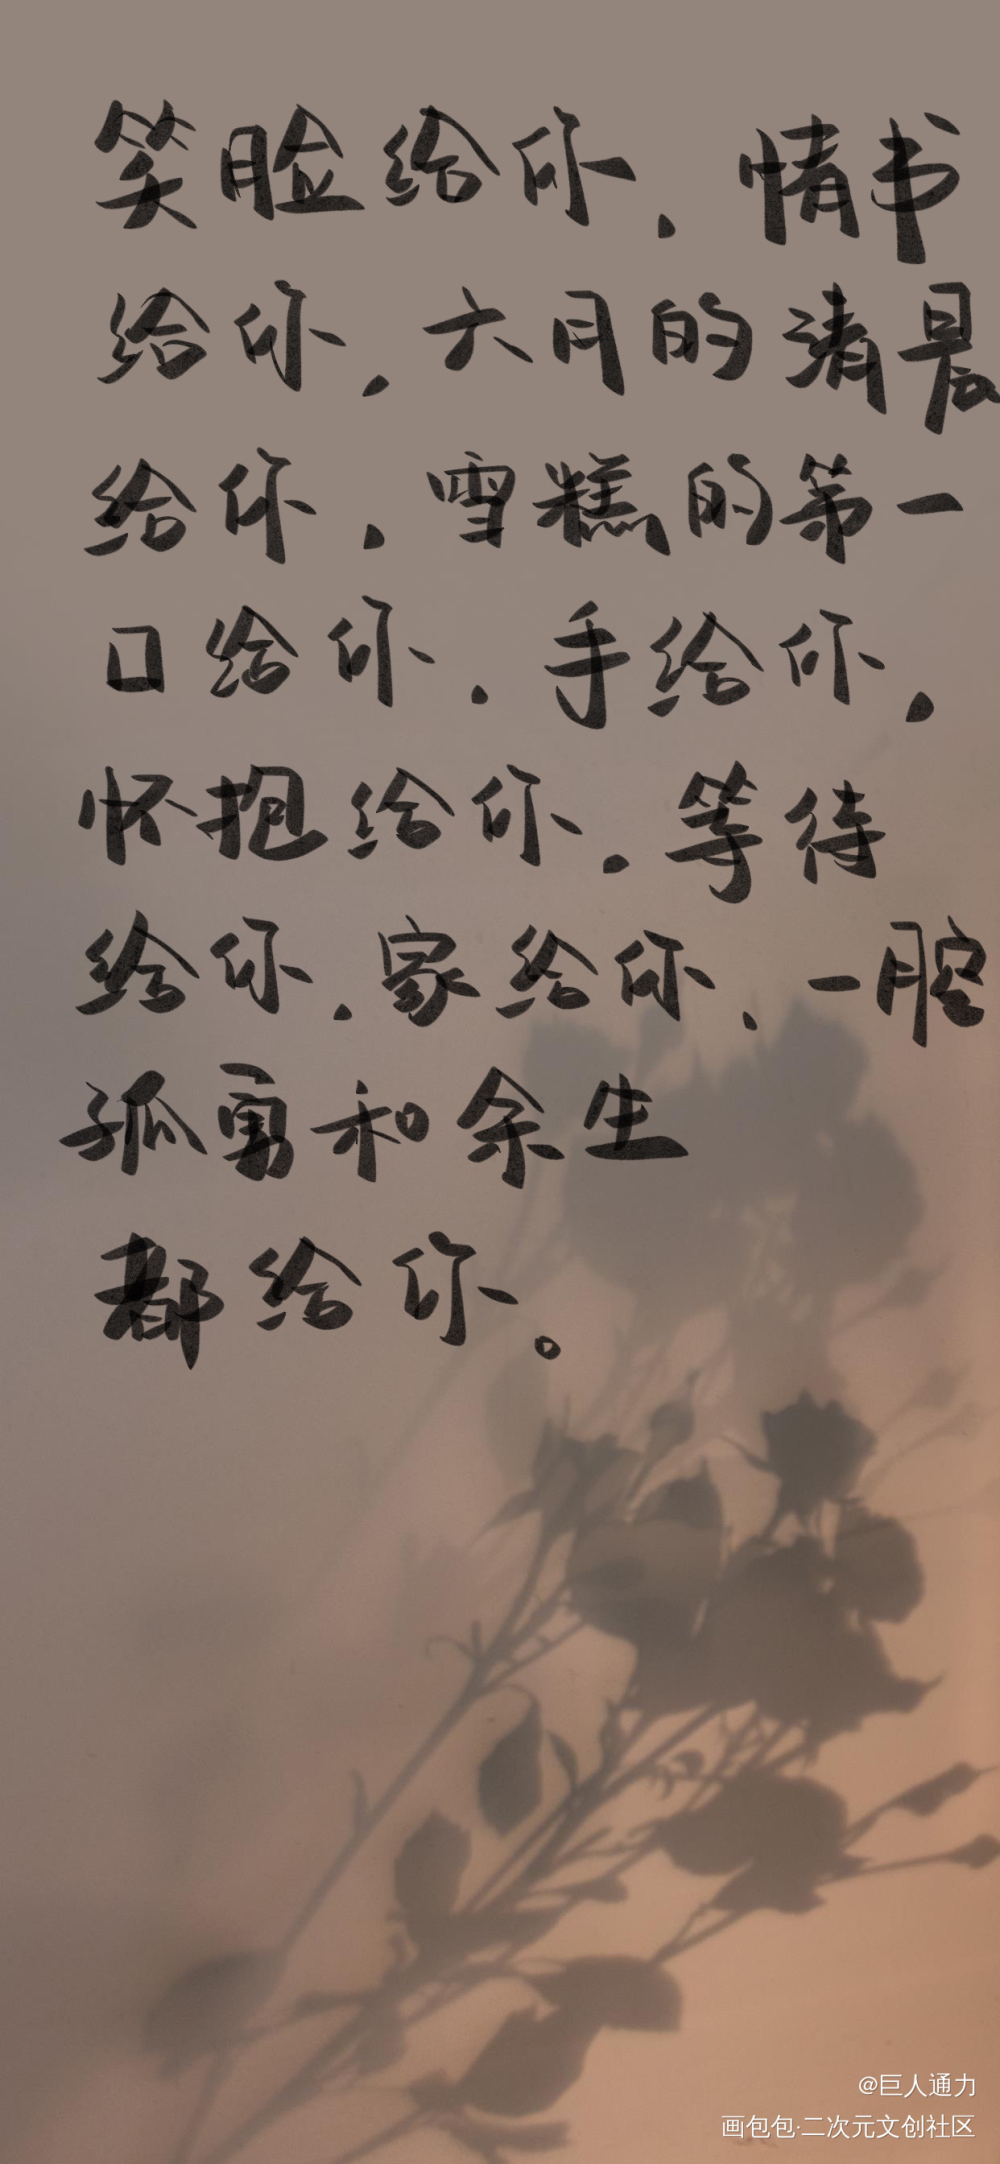 笑脸给你，情书
给你，六月的清晨
给你，雪糕的第一
口给你，手给你，
怀抱给你，等待
给你，家给你，一腔
孤勇和余生
都给你。
@巨人通力
画包包·二次元文创社区